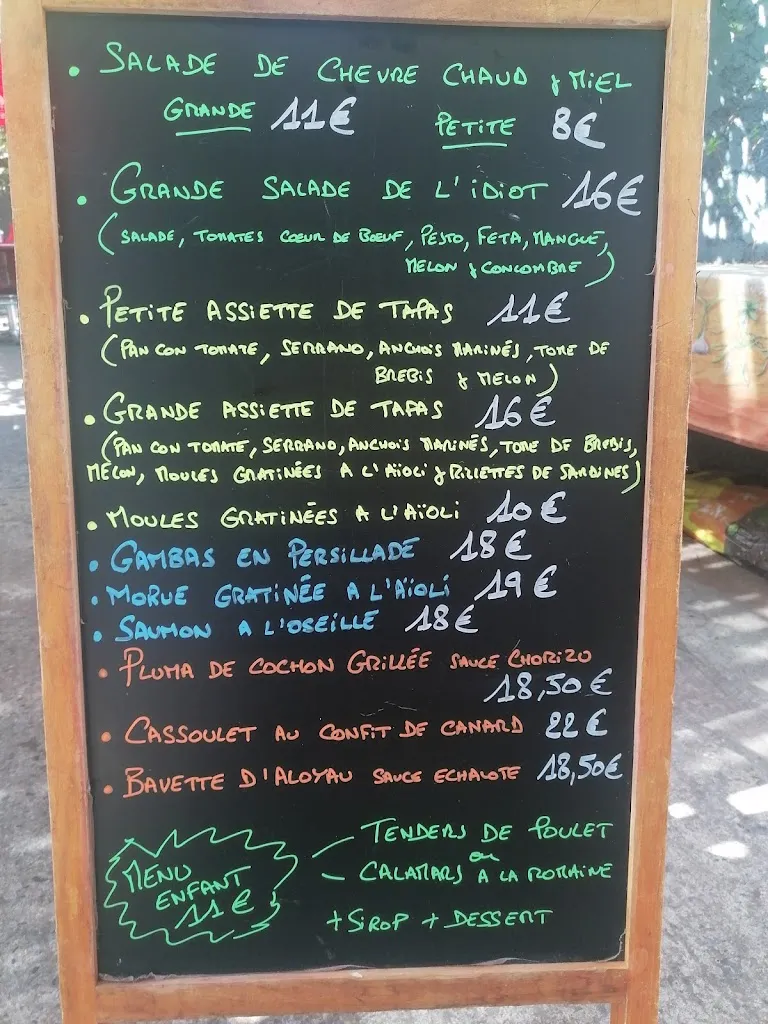 • SALADE DE CHEVRE CHAUD & MIEL
GRANDE 11€ PETITE 8€
• GRANDE SALADE DE L'IDIOT 16€
(SALADE, TOMATES COEUR DE BOEUF, PESTO, FETA, MANGUE,
MELON & CONCOMBRE)
• PETITE ASSIETTE DE TAPAS 11€
(PAN CON TOMATE, SERRANO, ANCHOIS MARINÉS, TOME DE
BREBIS & MELON)
• GRANDE ASSIETTE DE TAPAS 16€
(PAN CON TOMATE, SERRANO, ANCHOIS MARINÉS, TOME DE BREBIS,
MELON, MOULES GRATINÉES A L'AÏOLI & RILLETTES DE SARDINES)
• MOULES GRATINÉES A L'AÏOLI 10€
• GAMBAS EN PERSILLADE 18€
• MORUE GRATINÉE A L'AÏOLI 19€
• SAUMON A L'OSEILLE 18€
• PLUMA DE COCHON GRILLÉE SAUCE CHORIZO
18,50€
• CASSOULET AU CONFIT DE CANARD 22€
• BAVETTE D'ALOYAU SAUCE ECHALOTE 18,50€
MENU ENFANT 11€
TENDERS DE POULET
ou
CALAMARS A LA ROMAINE
+ SIROP + DESSERT